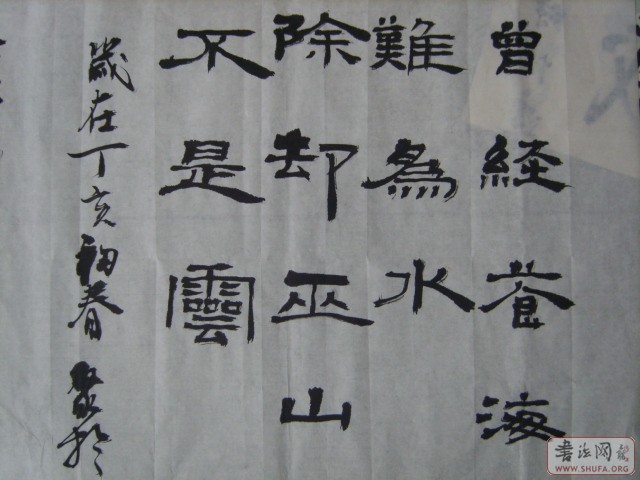 曾経蒼海
難為水
除却巫山
不是雲
歲在丁亥初春
書法网
WWW.SHUFA.ORG